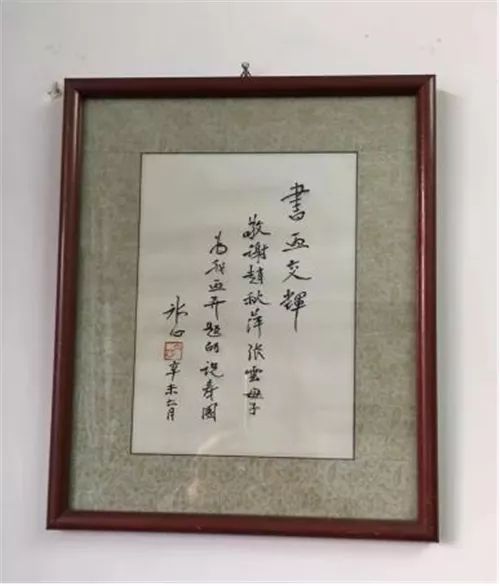 書画交輝
敬謝趙秋萍張雲母子
為我画并題的祝壽圖
冰心
辛未六月